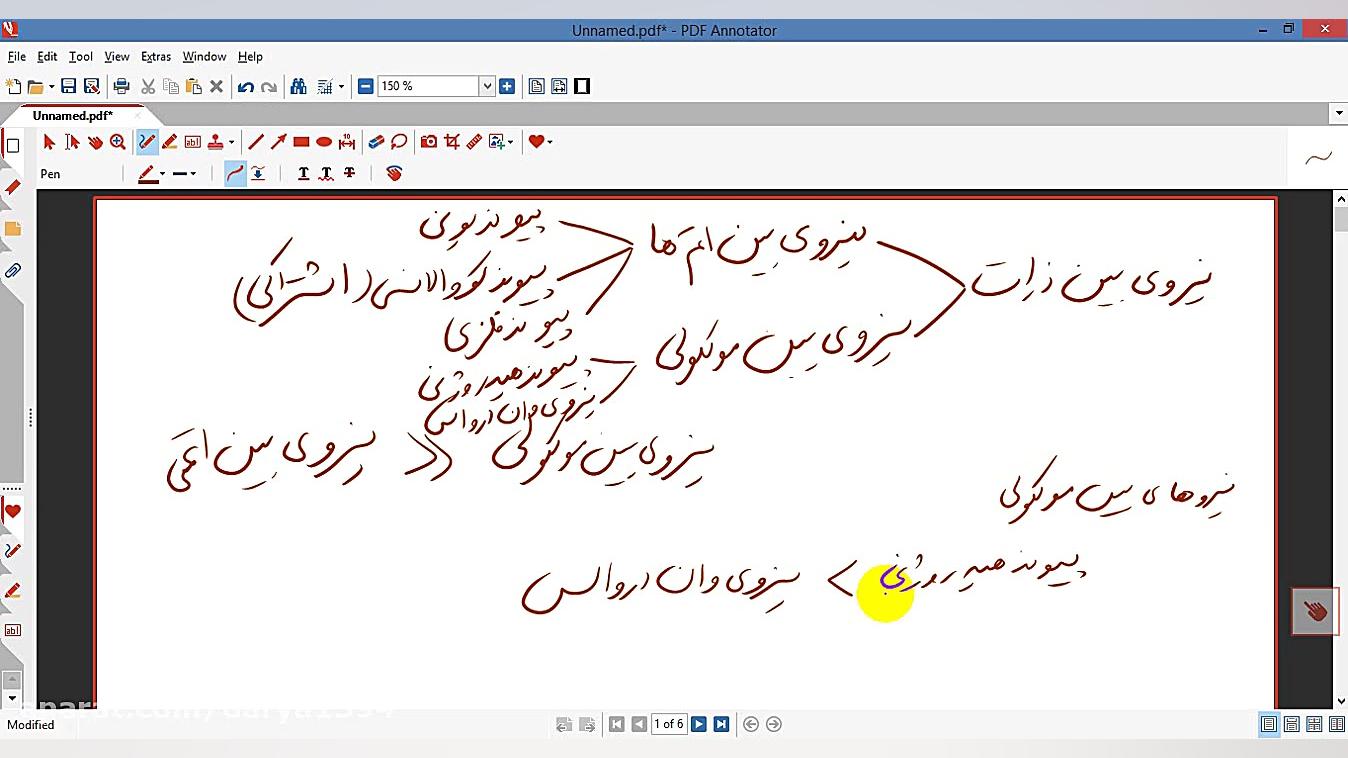 Unnamed.pdf* - PDF Annotator
File Edit Tool View Extras Window Help
150 %
Unnamed.pdf*
Pen
نیروی بین ذرات
نیروی بین اتم‌ها
پیوند یونی
پیوند کووالانسی (اشتراکی)
پیوند فلزی
نیروی بین مولکولی
پیوند هیدروژنی
نیروی وان دروالس
نیروی بین مولکولی << نیروی بین اتمی
نیروهای بین مولکولی
پیوند هیدروژنی > نیروی وان دروالس
Modified
1 of 6